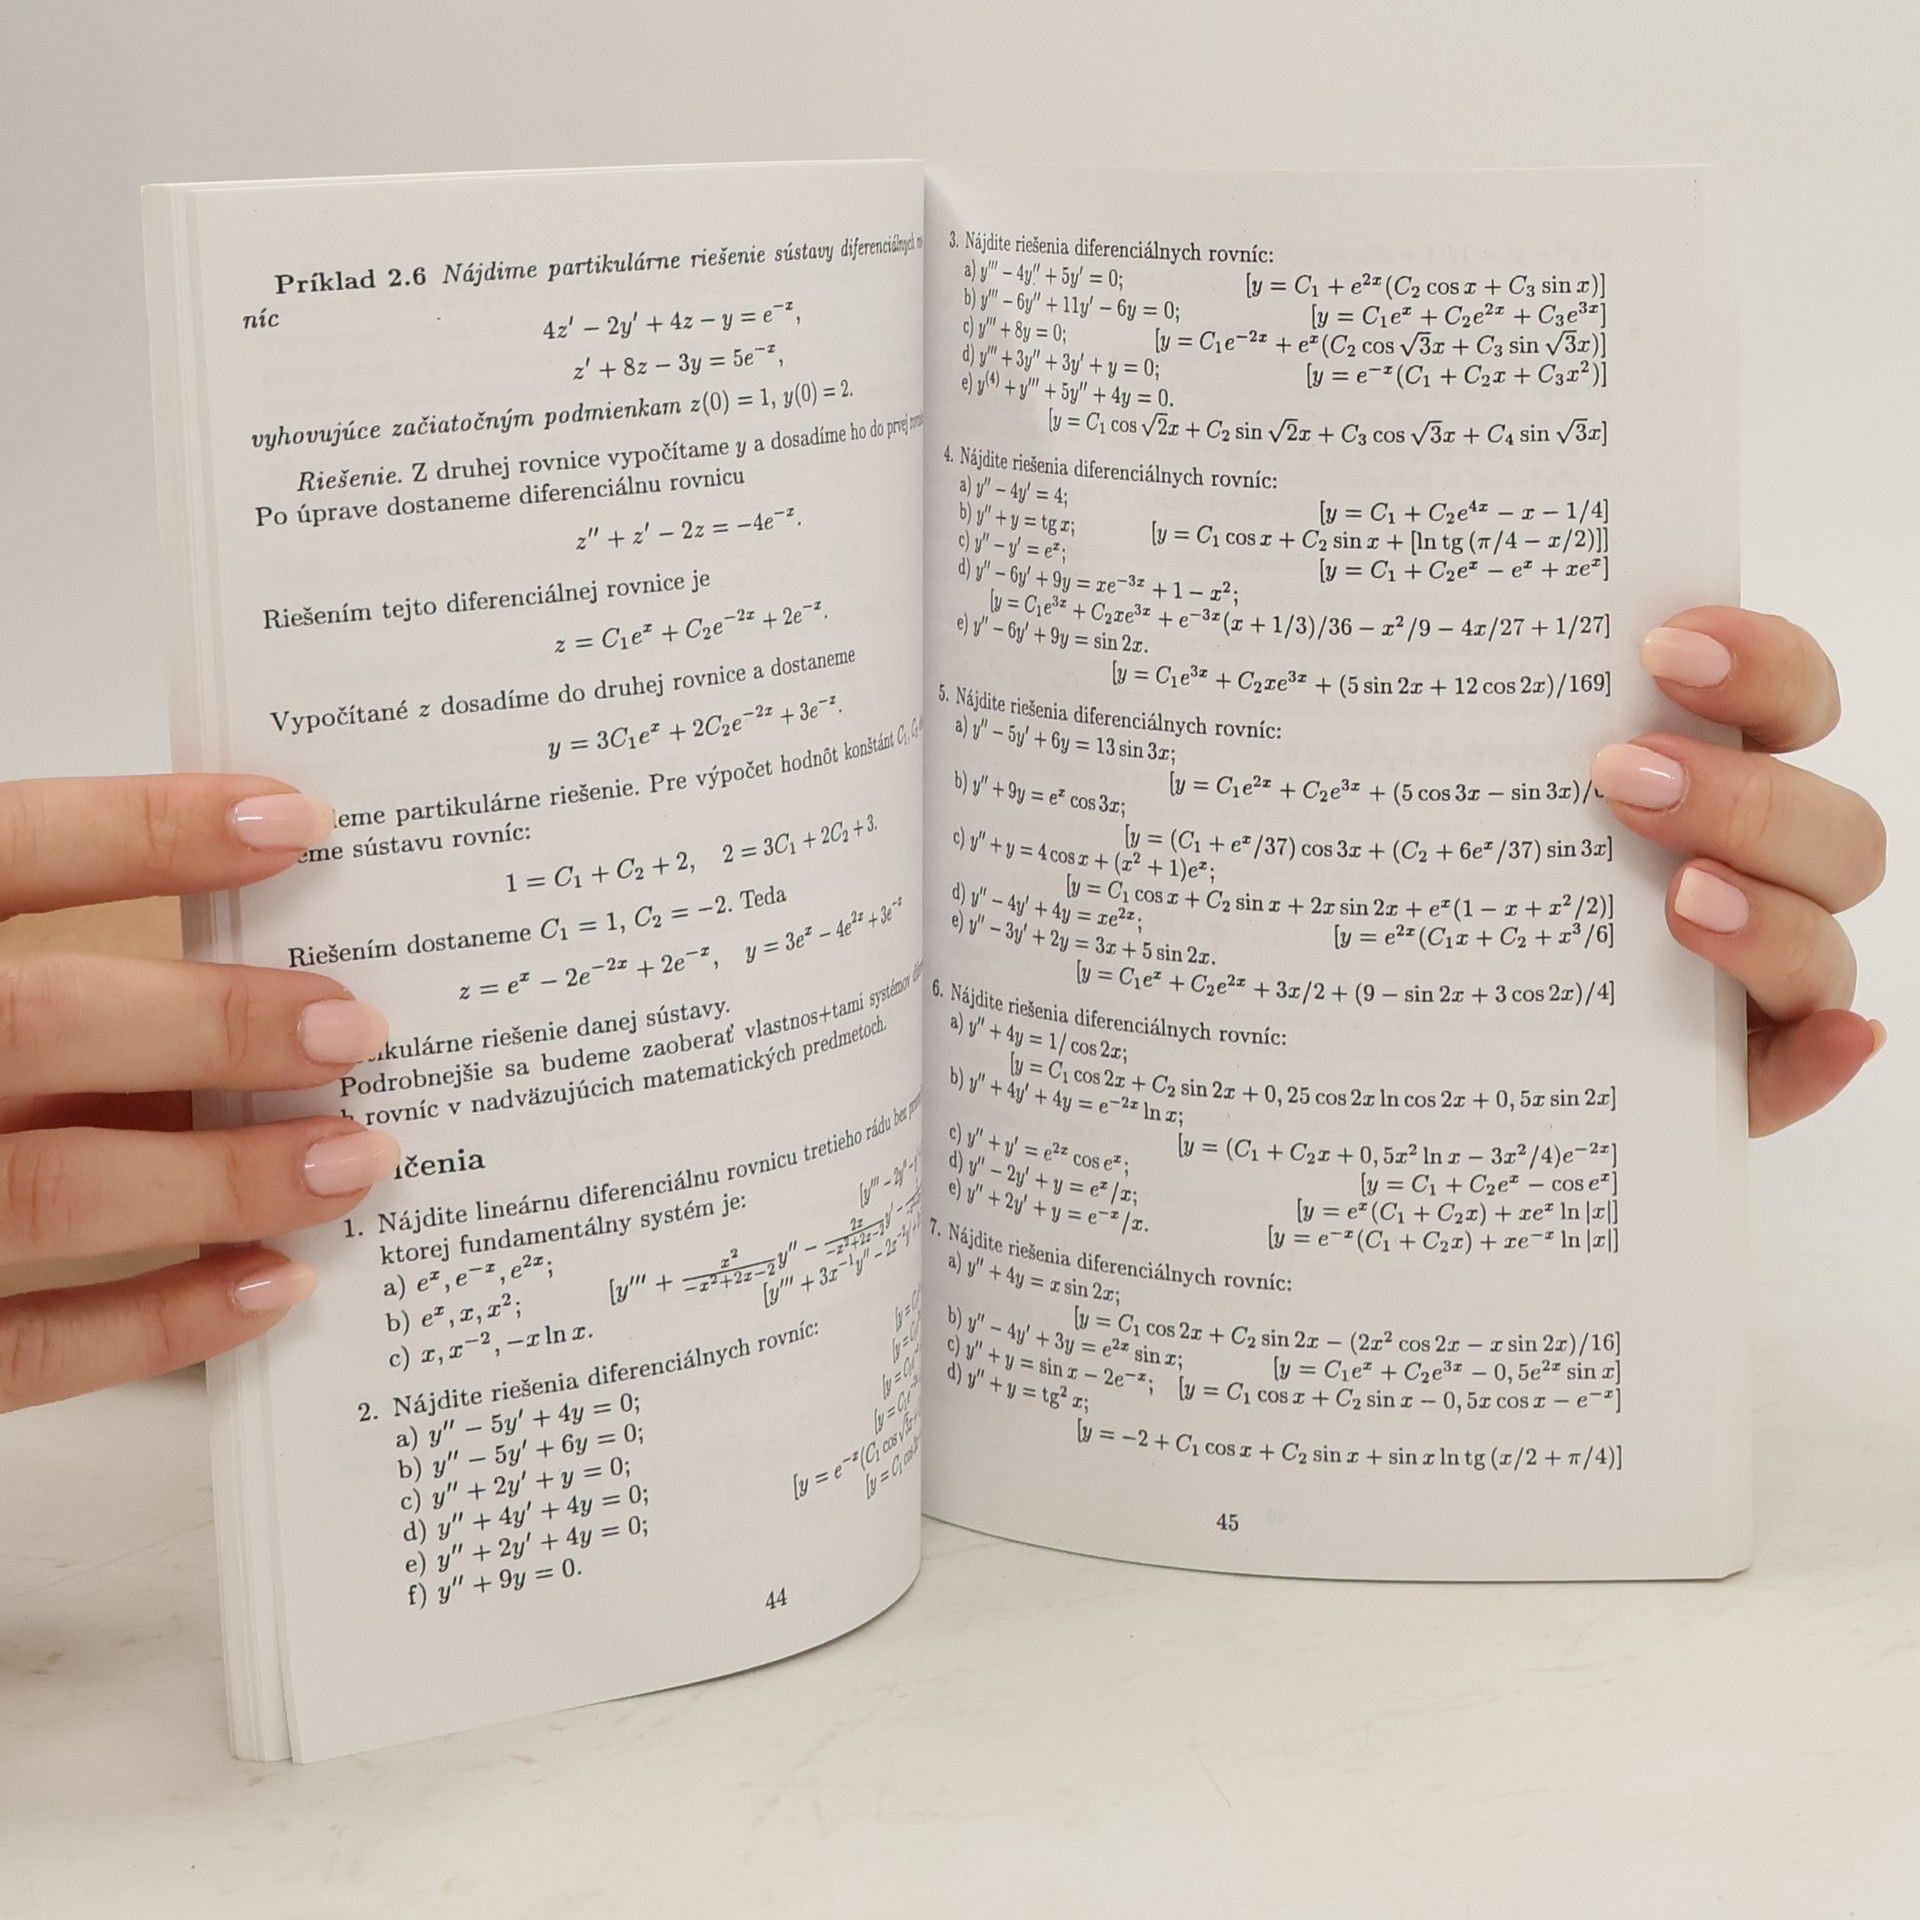 Príklad 2.6 Nájdime partikulárne riešenie sústavy diferenciálnych
níc
4z' − 2y' + 4z − y = e^{−x},
z' + 8z − 3y = 5e^{−x},
vyhovujúce začiatočným podmienkam z(0) = 1, y(0) = 2.
Riešenie. Z druhej rovnice vypočítame y a dosadíme ho do prvej
Po úprave dostaneme diferenciálnu rovnicu
z'' + z' − 2z = −4e^{−x}.
Riešením tejto diferenciálnej rovnice je
z = C₁e^x + C₂e^{−2x} + 2e^{−x}.
Vypočítané z dosadíme do druhej rovnice a dostaneme
y = 3C₁e^x + 2C₂e^{−2x} + 3e^{−x}.
partikulárne riešenie. Pre výpočet hodnôt konštánt C₁, C₂
sústavu rovníc:
1 = C₁ + C₂ + 2, 2 = 3C₁ + 2C₂ + 3.
Riešením dostaneme C₁ = 1, C₂ = −2. Teda
z = e^x − 2e^{−2x} + 2e^{−x}, y = 3e^x − 4e^{2x} + 3e^{−x}
riešenie danej sústavy.
Podrobnejšie sa budeme zaoberať vlastnos+tami systémov
rovníc v nadväzujúcich matematických predmetoch.
1. Nájdite lineárnu diferenciálnu rovnicu tretieho rádu bez
ktorej fundamentálny systém je:
a) e^x, e^{−x}, e^{2x}; [y''' − 2y'' −
b) e^x, x, x²; [y''' + x²/(−x²+2x−2) y'' − 2x/(−x²+2x−2) y'
c) x, x^{−2}, −x ln x. [y''' + 3x^{−1}y'' − 2x^{−2}y'
2. Nájdite riešenia diferenciálnych rovníc:
a) y'' − 5y' + 4y = 0;
b) y'' − 5y' + 6y = 0;
c) y'' + 2y' + y = 0;
d) y'' + 4y' + 4y = 0;
e) y'' + 2y' + 4y = 0; [y = e^{−x}(C₁ cos
f) y'' + 9y = 0. [y = C₁ cos
44
3. Nájdite riešenia diferenciálnych rovníc:
a) y''' − 4y'' + 5y' = 0; [y = C₁ + e^{2x}(C₂ cos x + C₃ sin x)]
b) y''' − 6y'' + 11y' − 6y = 0; [y = C₁e^x + C₂e^{2x} + C₃e^{3x}]
c) y''' + 8y = 0; [y = C₁e^{−2x} + e^x(C₂ cos √3x + C₃ sin √3x)]
d) y''' + 3y'' + 3y' + y = 0; [y = e^{−x}(C₁ + C₂x + C₃x²)]
e) y^{(4)} + y''' + 5y'' + 4y = 0.
[y = C₁ cos √2x + C₂ sin √2x + C₃ cos √3x + C₄ sin √3x]
4. Nájdite riešenia diferenciálnych rovníc:
a) y'' − 4y' = 4; [y = C₁ + C₂e^{4x} − x − 1/4]
b) y'' + y = tg x; [y = C₁ cos x + C₂ sin x + [ln tg (π/4 − x/2)]]
c) y'' − y' = e^x; [y = C₁ + C₂e^x − e^x + xe^x]
d) y'' − 6y' + 9y = xe^{−3x} + 1 − x²;
[y = C₁e^{3x} + C₂xe^{3x} + e^{−3x}(x + 1/3)/36 − x²/9 − 4x/27 + 1/27]
e) y'' − 6y' + 9y = sin 2x.
[y = C₁e^{3x} + C₂xe^{3x} + (5 sin 2x + 12 cos 2x)/169]
5. Nájdite riešenia diferenciálnych rovníc:
a) y'' − 5y' + 6y = 13 sin 3x;
[y = C₁e^{2x} + C₂e^{3x} + (5 cos 3x − sin 3x)/
b) y'' + 9y = e^x cos 3x;
[y = (C₁ + e^x/37) cos 3x + (C₂ + 6e^x/37) sin 3x]
c) y'' + y = 4 cos x + (x² + 1)e^x;
[y = C₁ cos x + C₂ sin x + 2x sin 2x + e^x(1 − x + x²/2)]
d) y'' − 4y' + 4y = xe^{2x}; [y = e^{2x}(C₁x + C₂ + x³/6]
e) y'' − 3y' + 2y = 3x + 5 sin 2x.
[y = C₁e^x + C₂e^{2x} + 3x/2 + (9 − sin 2x + 3 cos 2x)/4]
6. Nájdite riešenia diferenciálnych rovníc:
a) y'' + 4y = 1/ cos 2x;
[y = C₁ cos 2x + C₂ sin 2x + 0, 25 cos 2x ln cos 2x + 0, 5x sin 2x]
b) y'' + 4y' + 4y = e^{−2x} ln x;
[y = (C₁ + C₂x + 0, 5x² ln x − 3x²/4)e^{−2x}]
c) y'' + y' = e^{2x} cos e^x; [y = C₁ + C₂e^x − cos e^x]
d) y'' − 2y' + y = e^x/x; [y = e^x(C₁ + C₂x) + xe^x ln |x|]
e) y'' + 2y' + y = e^{−x}/x. [y = e^{−x}(C₁ + C₂x) + xe^{−x} ln |x|]
7. Nájdite riešenia diferenciálnych rovníc:
a) y'' + 4y = x sin 2x;
[y = C₁ cos 2x + C₂ sin 2x − (2x² cos 2x − x sin 2x)/16]
b) y'' − 4y' + 3y = e^{2x} sin x; [y = C₁e^x + C₂e^{3x} − 0, 5e^{2x} sin x]
c) y'' + y = sin x − 2e^{−x}; [y = C₁ cos x + C₂ sin x − 0, 5x cos x − e^{−x}]
d) y'' + y = tg² x;
[y = −2 + C₁ cos x + C₂ sin x + sin x ln tg (x/2 + π/4)]
45